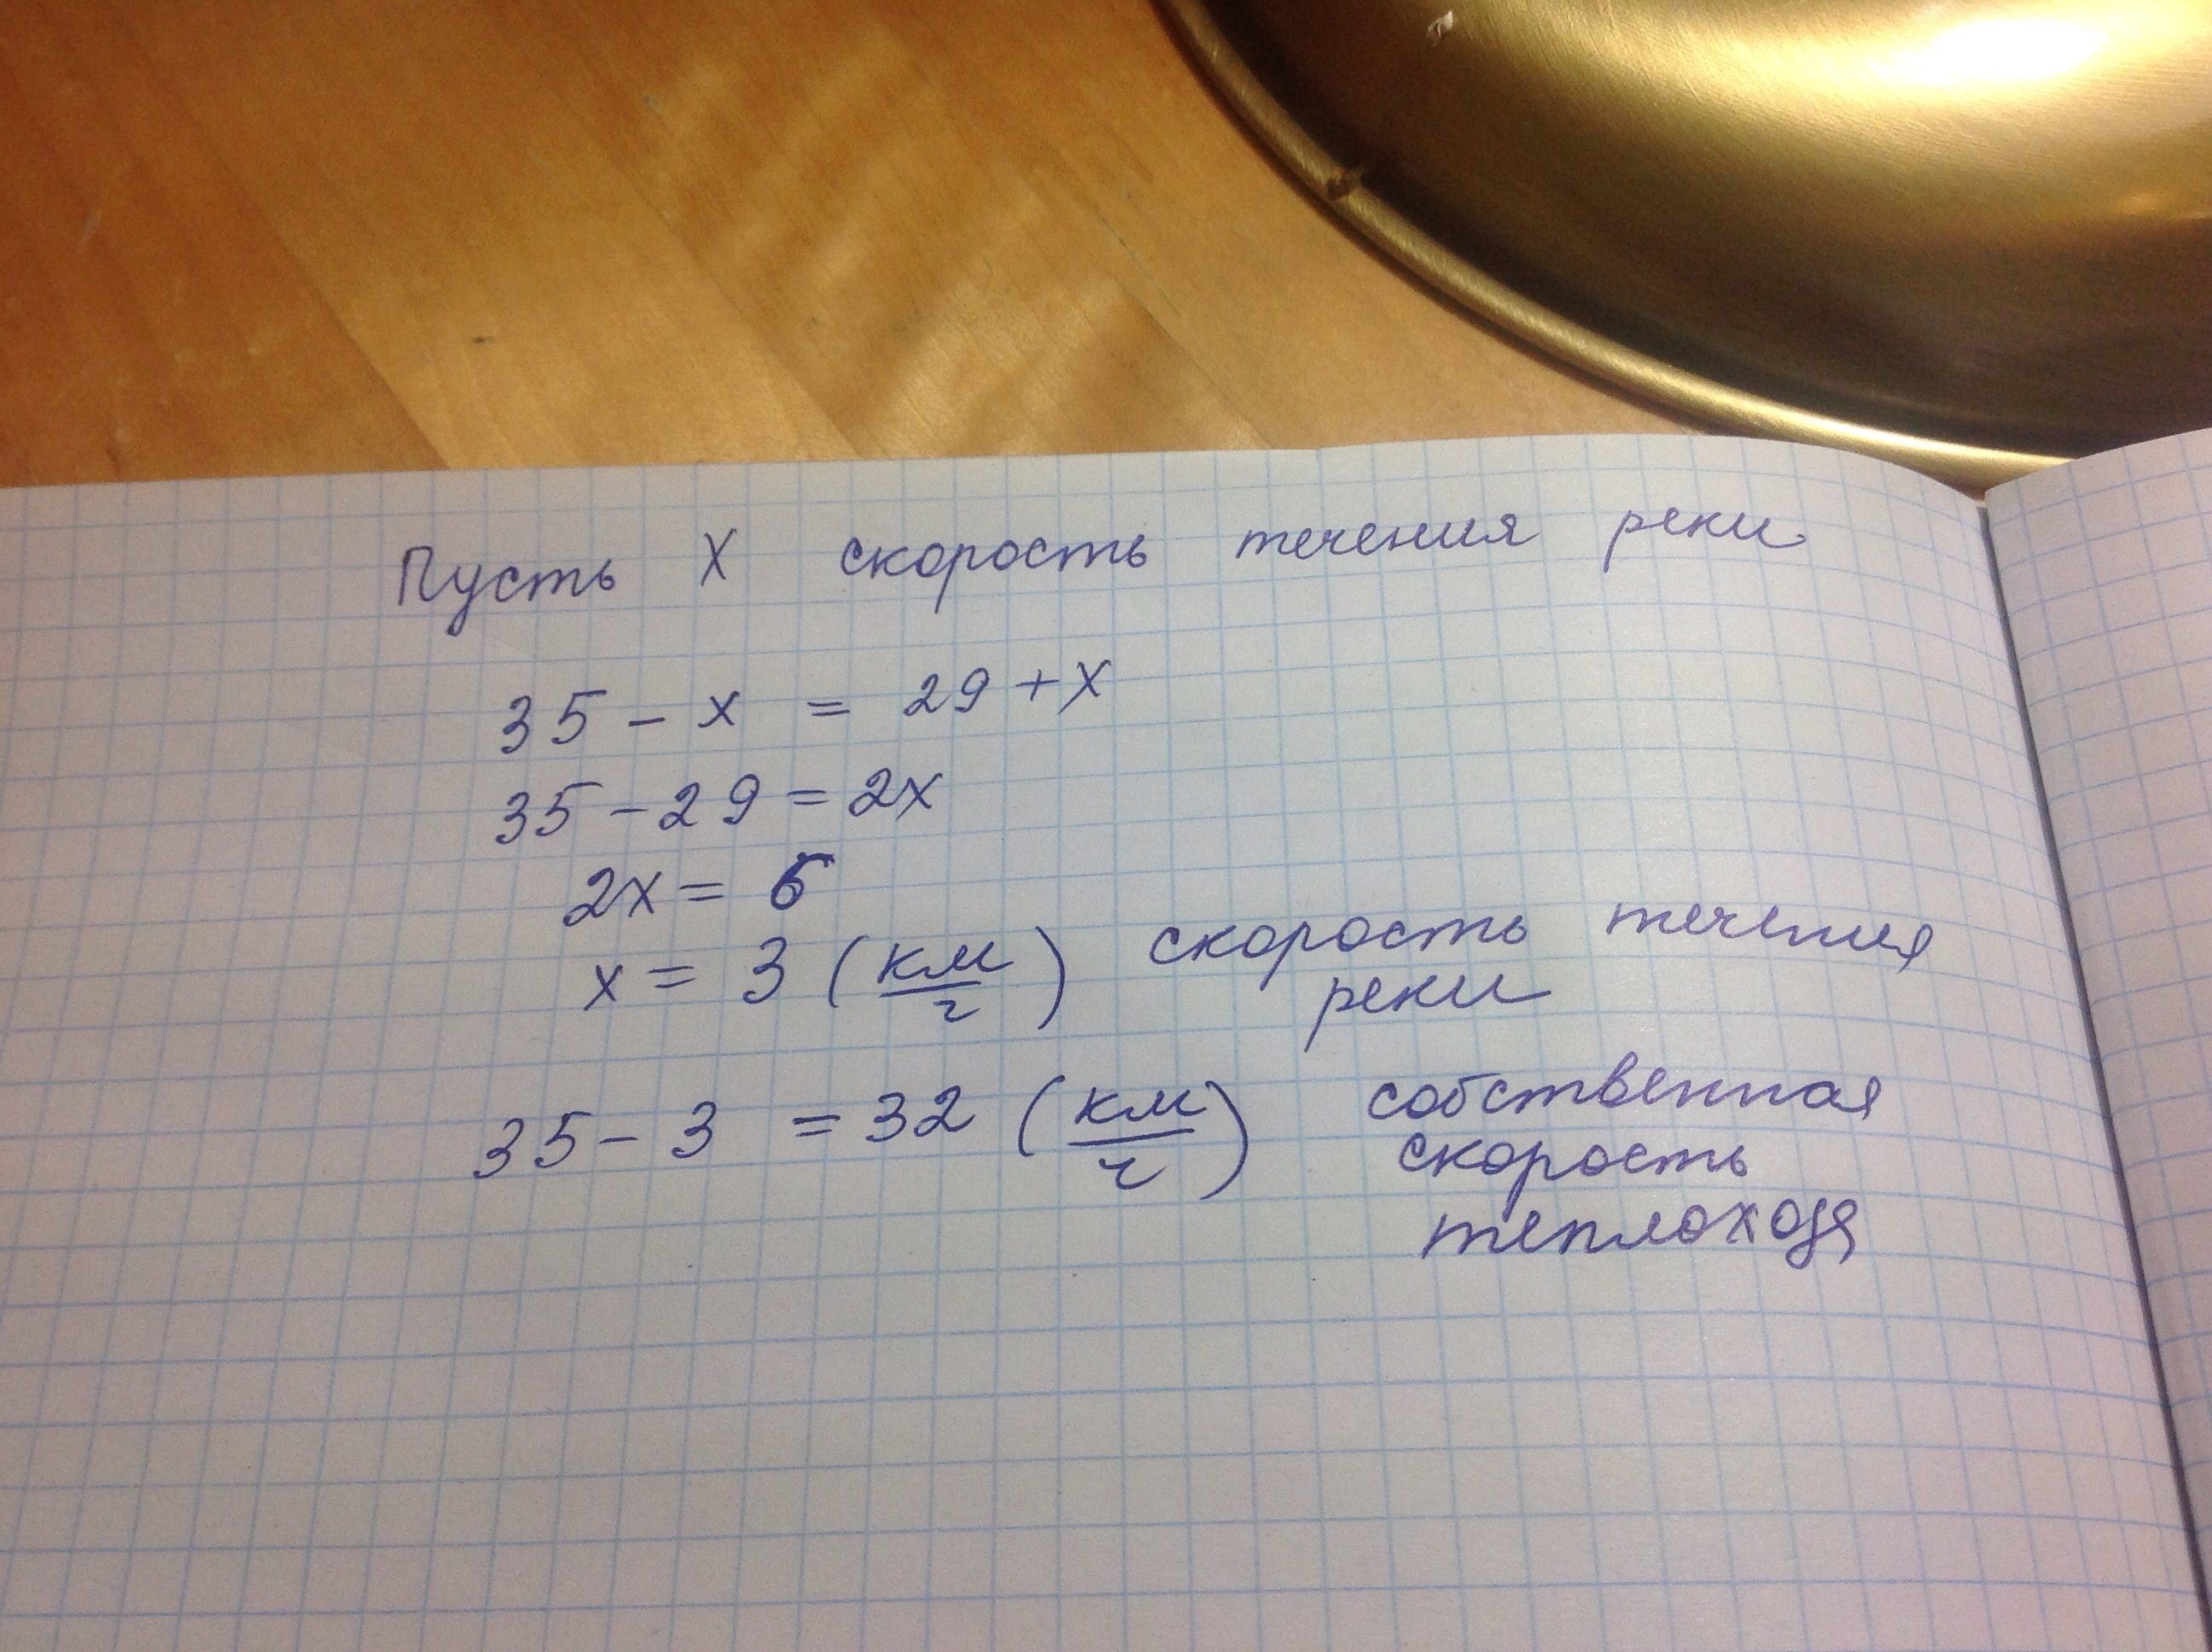 Пусть X скорость течения реки
35 - x = 29 + x
35 - 29 = 2x
2x = 6
x = 3 (км/ч) скорость течения
реки
35 - 3 = 32 (км/ч) собственная
скорость
теплохода